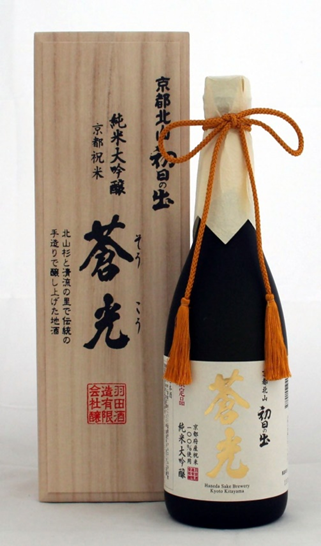 京都北山
初日の出
純米大吟醸
京都祝米
蒼光
そうこう
北山杉と清流の里で伝統の
手造りで醸し上げた地酒
羽田酒
造有限
会社醸
京都北山
初日の出
蒼光
京都府産祝米
一〇〇%使用
純米大吟醸
Haneda Sake Brewery
Kyoto Kitayama